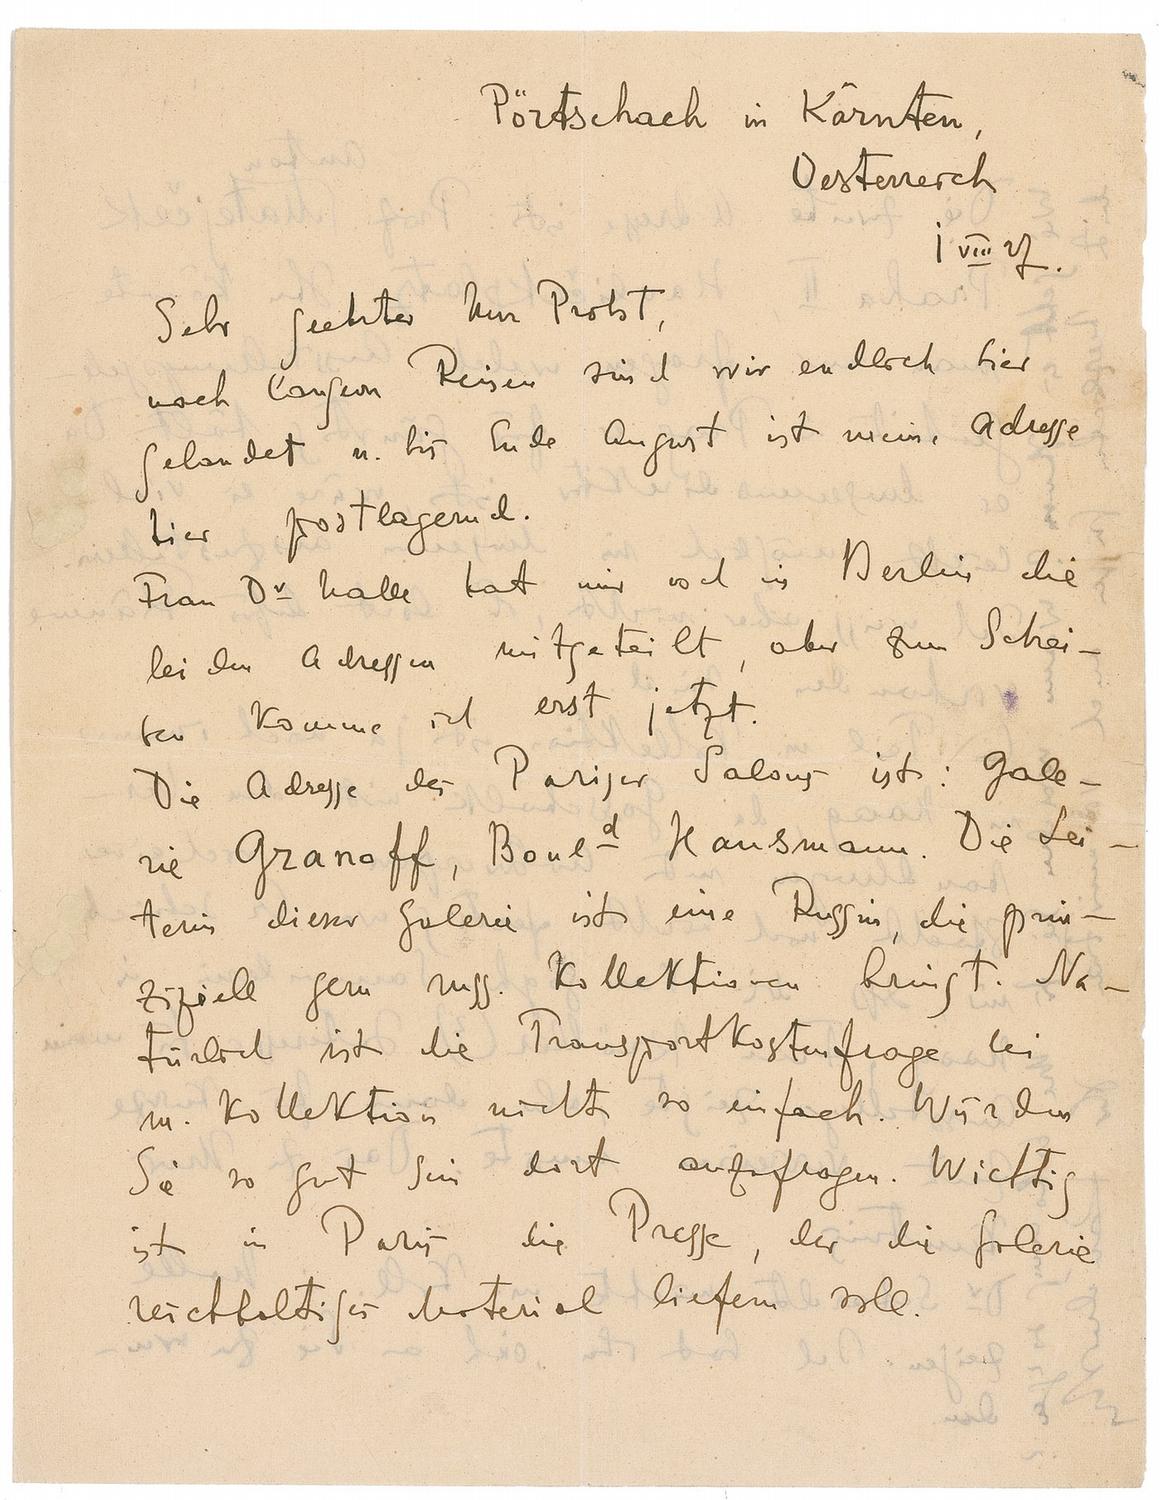 Pörtschach in Kärnten,
Oesterreich
1 VIII 27.
Sehr geehrter Herr Probst,
nach langen Reisen sind wir endlich hier
gelandet u. bis Ende August ist meine Adresse
hier postlagernd.
Frau Dr Halle hat mir noch in Berlin die
beiden Adressen mitgeteilt, aber zum Schrei-
ben komme ich erst jetzt.
Die Adresse des Pariser Salons ist: Gale-
rie Granoff, Bould Hausmann. Die Lei-
terin dieser Galerie ist eine Russin, die prin-
zipiell gern russ. Kollektionen bringt. Na-
türlich ist die Transportkostenfrage bei
m. Kollektion nicht so einfach. Würden
Sie so gut sein dort anzufragen. Wichtig
ist in Paris die Presse, der die Galerie
reichhaltiges Material liefern soll.